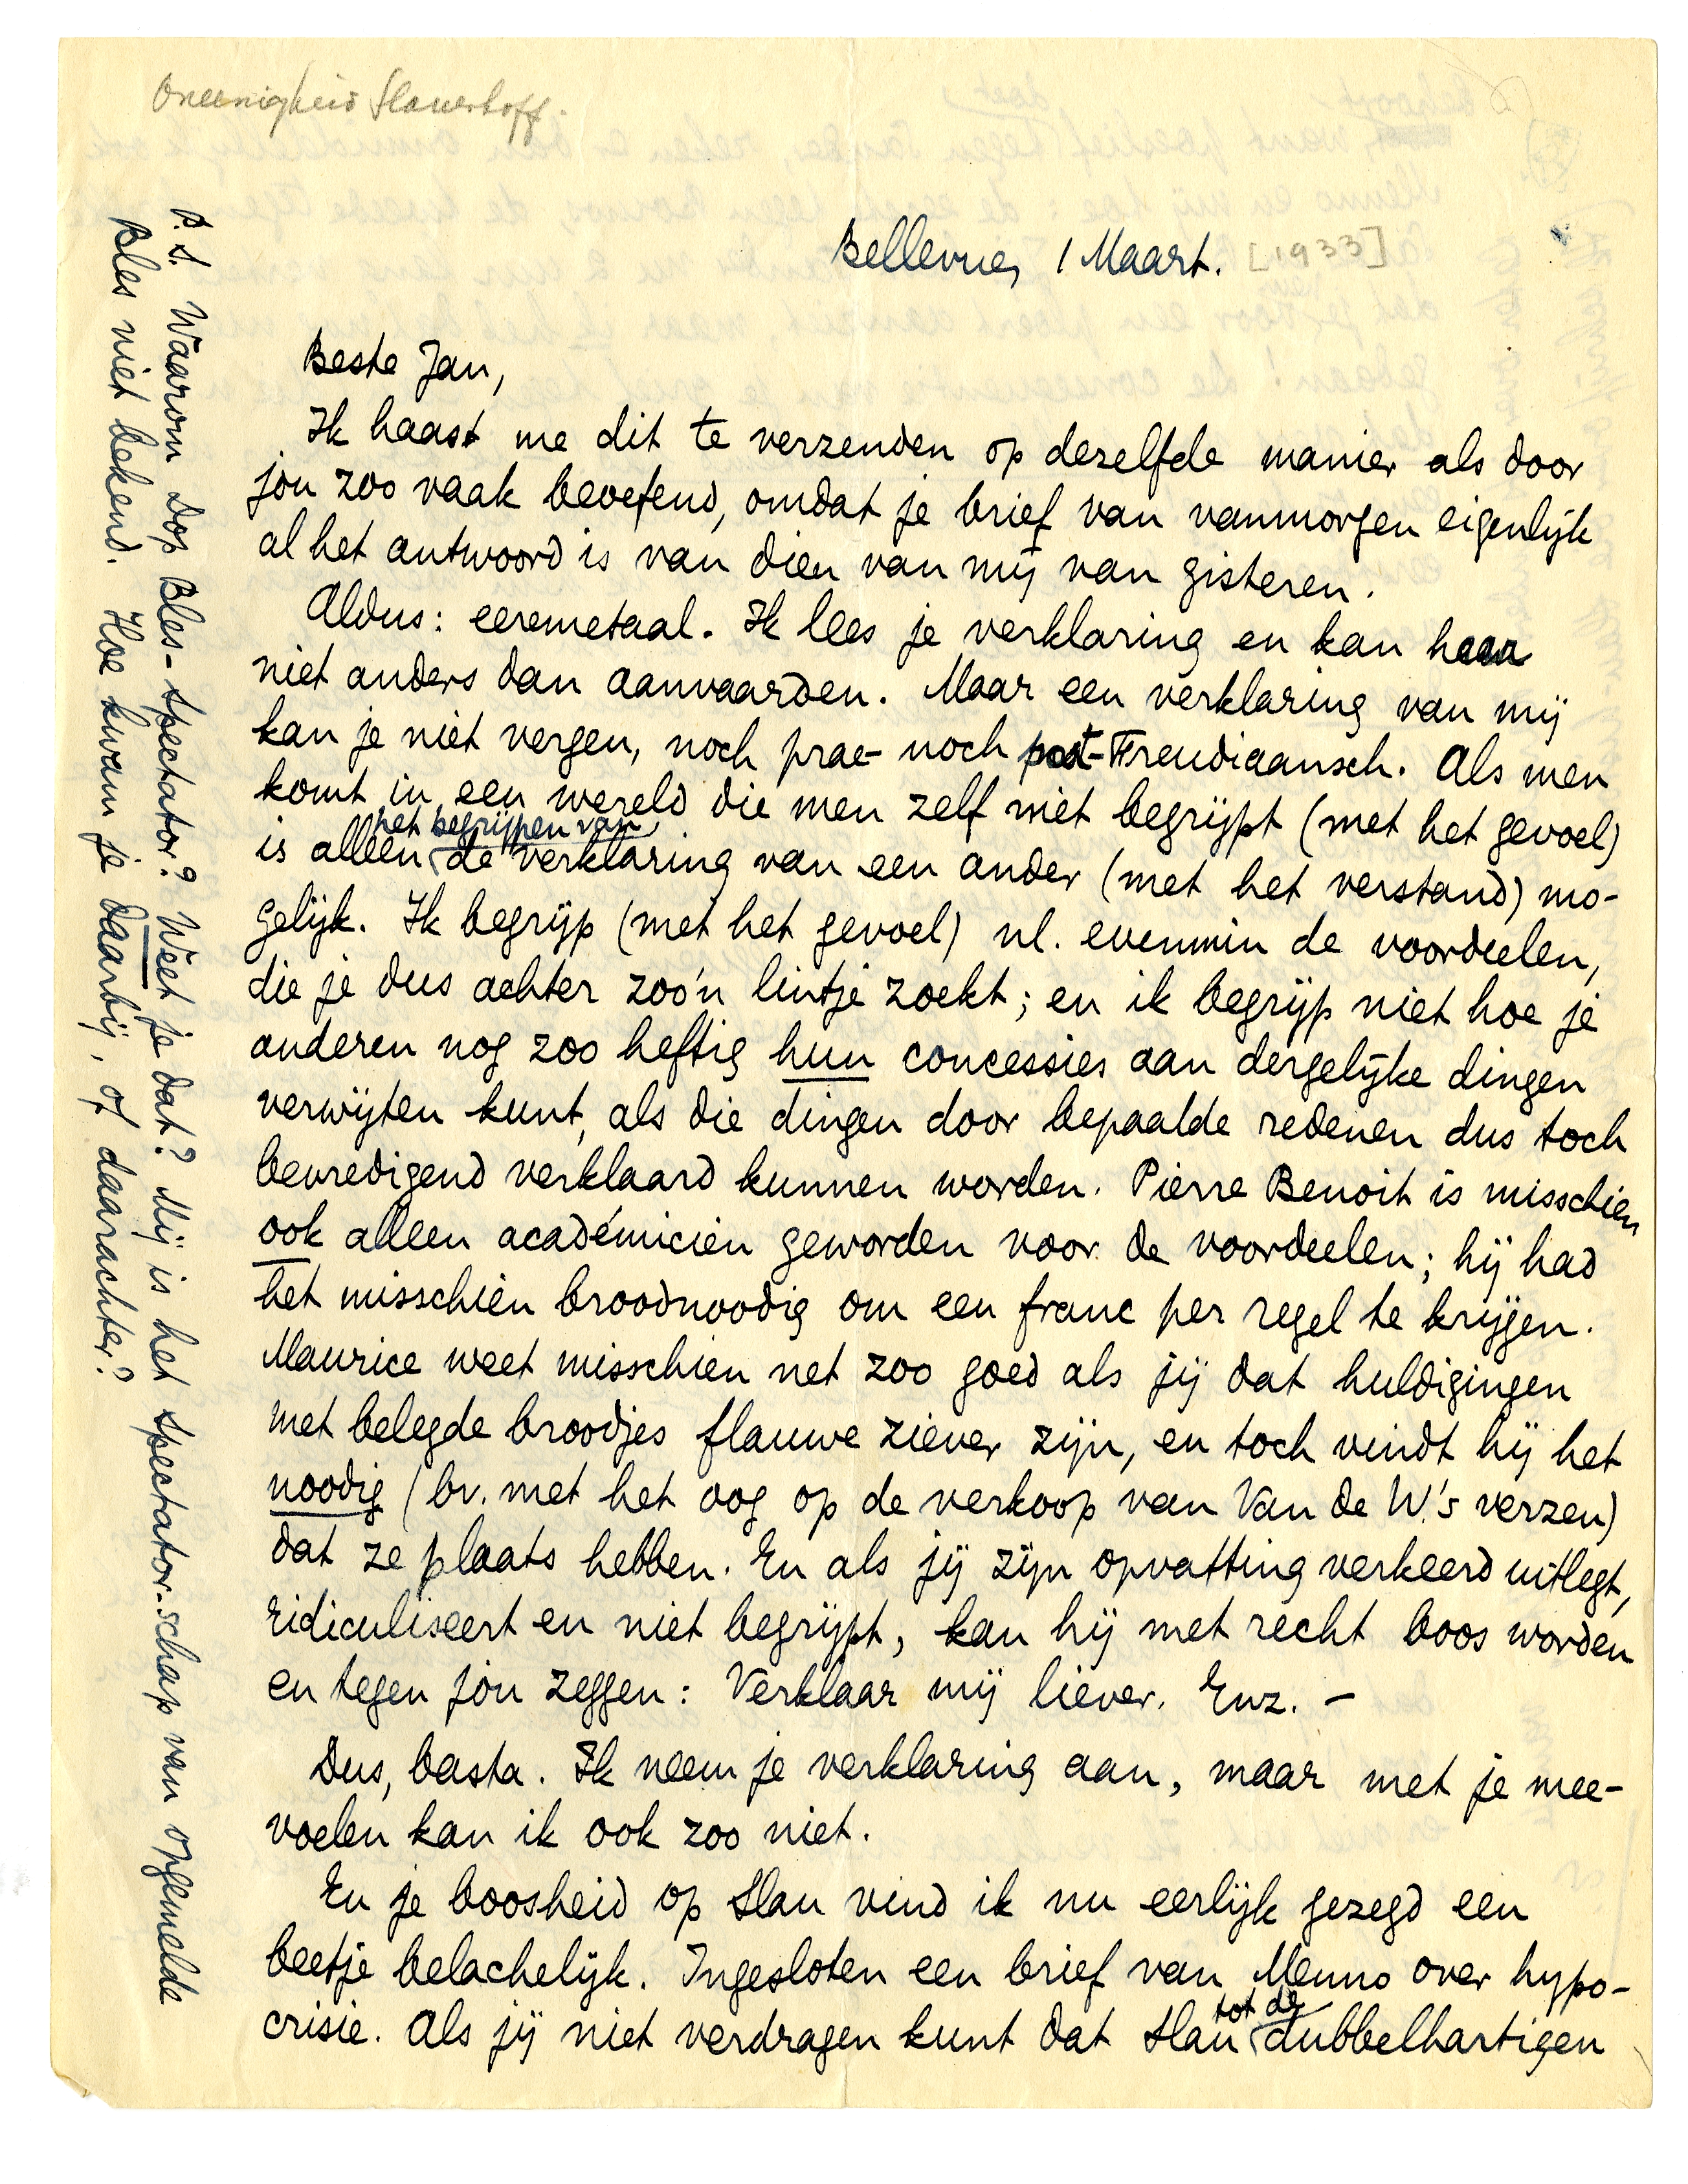 Oneenigheid Slauerhoff.
Bellevue, 1 Maart. [1933]
Beste Jan,
Ik haast me dit te verzenden op dezelfde manier als door
jou zoo vaak beoefend, omdat je brief van vanmorgen eigenlijk
al het antwoord is van dien van mij van gisteren.
Aldus: eeremetaal. Ik lees je verklaring en kan haar
niet anders dan aanvaarden. Maar een verklaring van mij
kan je niet vergen, noch prae- noch post-Freudiaansch. Als men
komt in een wereld die men zelf niet begrijpt (met het gevoel)
is alleen het begrijpen van de verklaring van een ander (met het verstand) mo-
gelijk. Ik begrijp (met het gevoel) nl. evenmin de voordeelen,
die je dus achter zoo'n lintje zoekt; en ik begrijp niet hoe je
anderen nog zoo heftig hun concessies aan dergelijke dingen
verwijten kunt, als die dingen door bepaalde redenen dus toch
bevredigend verklaard kunnen worden. Pierre Benoit is misschien
ook alleen académicien geworden voor de voordeelen; hij had
het misschien broodnoodig om een franc per regel te krijgen.
Maurice weet misschien net zoo goed als jij dat huldigingen
met belegde broodjes flauwe ziever zijn, en toch vindt hij het
noodig (bv. met het oog op de verkoop van Van de W.'s verzen)
dat ze plaats hebben. En als jij zijn opvatting verkeerd uitlegt,
ridiculiseert en niet begrijpt, kan hij met recht boos worden
en tegen jou zeggen: Verklaar mij liever. Enz. –
Dus, basta. Ik neem je verklaring aan, maar met je mee-
voelen kan ik ook zoo niet.
En je boosheid op Slau vind ik nu eerlijk gezegd een
beetje belachelijk. Ingesloten een brief van Menno over hypo-
crisie. Als jij niet verdragen kunt dat Slau tot de dubbelhartigen
P.S. Waarom Dop Bles-Spectator? Weet je dat? Mij is het Spectator-schap van opgemelde
Bles niet bekend. Hoe kwam je daarbij, of daarachter?